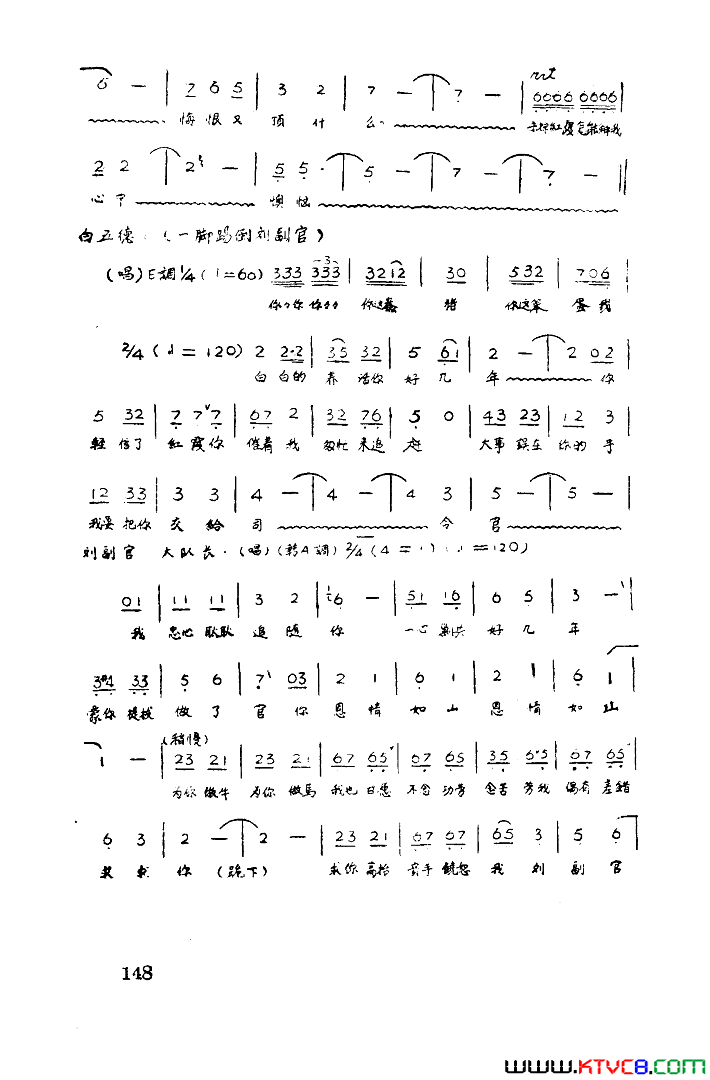 6 — | 7 6 5 | 3 2 | 7 — | 7 — | 6666 6666 |
悔恨又 頂什 么
2 2 | 2 — | 5 5· | 5 — | 7 — | 7 — ‖
心下 懊惱
白五德:(一脚踢倒刘副官)
(唱)E調 1/4 (♩=60) 333 333 | 3212 | 30 | 532 | 706 |
你这蠢 猪 你这笨 蛋我
2/4 (♩=120) 2 2·2 | 35 32 | 5 61 | 2 — | 2 02 |
白 白的 养 活你 好 几 年 你
5 32 | 7 7 7 | 67 2 | 32 76 | 5 0 | 43 23 | 12 3 |
轻 信了 紅 霞你 催着 我 匆忙 来追 赶 大事 誤在 你的 手
12 33 | 3 3 | 4 — | 4 — | 4 3 | 5 — | 5 — |
我要 把你 交 給 司 令 官
刘副官 大队长·(唱)(轉A調) 2/4 (4=1)(♩=120)
01 | 11 11 | 3 2 | 16 — | 51 16 | 6 5 | 3 — |
我 忠心 耿耿 追 随 你 一心 剿共 好 几 年
34 33 | 5 6 | 7 03 | 2 1 | 6 1 | 2 1 | 6 1 |
蒙你 提拔 做 了 官 你 恩 情 如 山 恩 情 如 山
(稍慢)
1 — | 23 21 | 23 21 | 67 65 | 67 65 | 35 65 | 67 65 |
为你 做牛 为你 做馬 我也 甘愿 不念 功劳 念苦 劳我 偶有 差錯
6 3 | 2 — | 2 — | 23 21 | 67 67 | 65 3 | 5 6 |
求 你 (跪下) 求你 高抬 貴手 饒恕 我 刘 副 官
148
WWW.KTVC8.COM